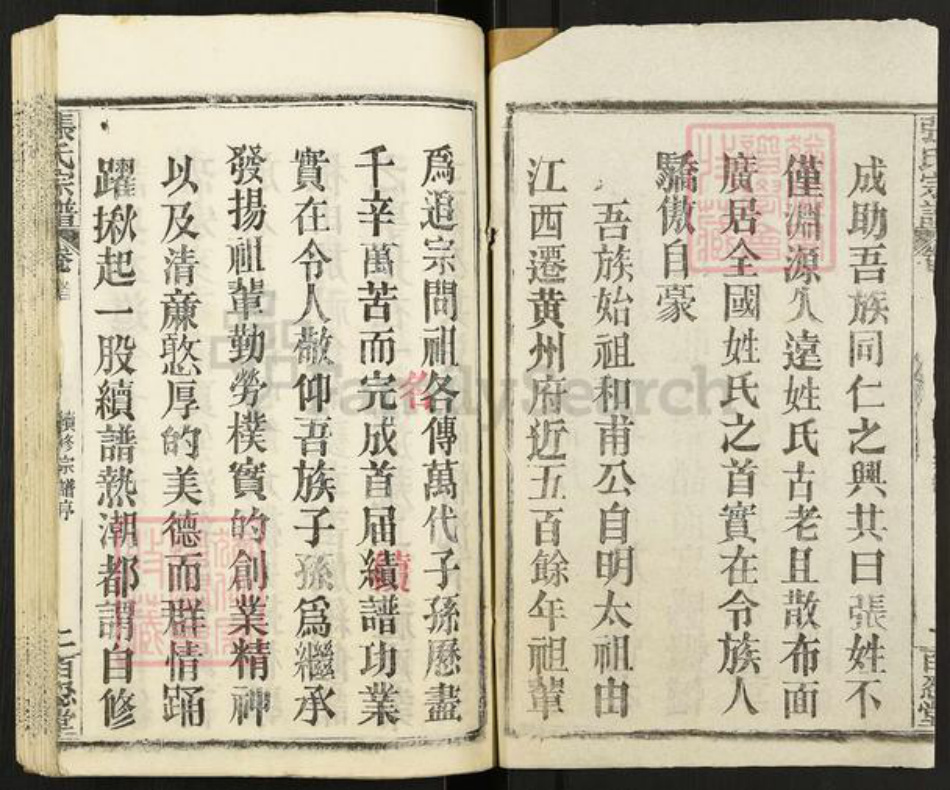 成助吾族同仁之興其曰張姓不
僅淵源久遠姓氏古老且散布面
廣居全國姓氏之首實在令族人
驕傲自豪
吾族始祖和甫公自明太祖由
江西遷黄州府近五百餘年祖輩
爲追宗問祖各傳萬代子孫歷盡
名
千辛萬苦而完成首屆續譜功業
續
實在令人敬仰吾族子孫爲繼承
發揚祖輩勤勞樸實的創業精神
以及清廉憨厚的美德而群情踊
躍揪起一股續譜熱潮都謂自修
張氏宗譜 卷首 續修宗譜序 二百忍堂
FamilySearch